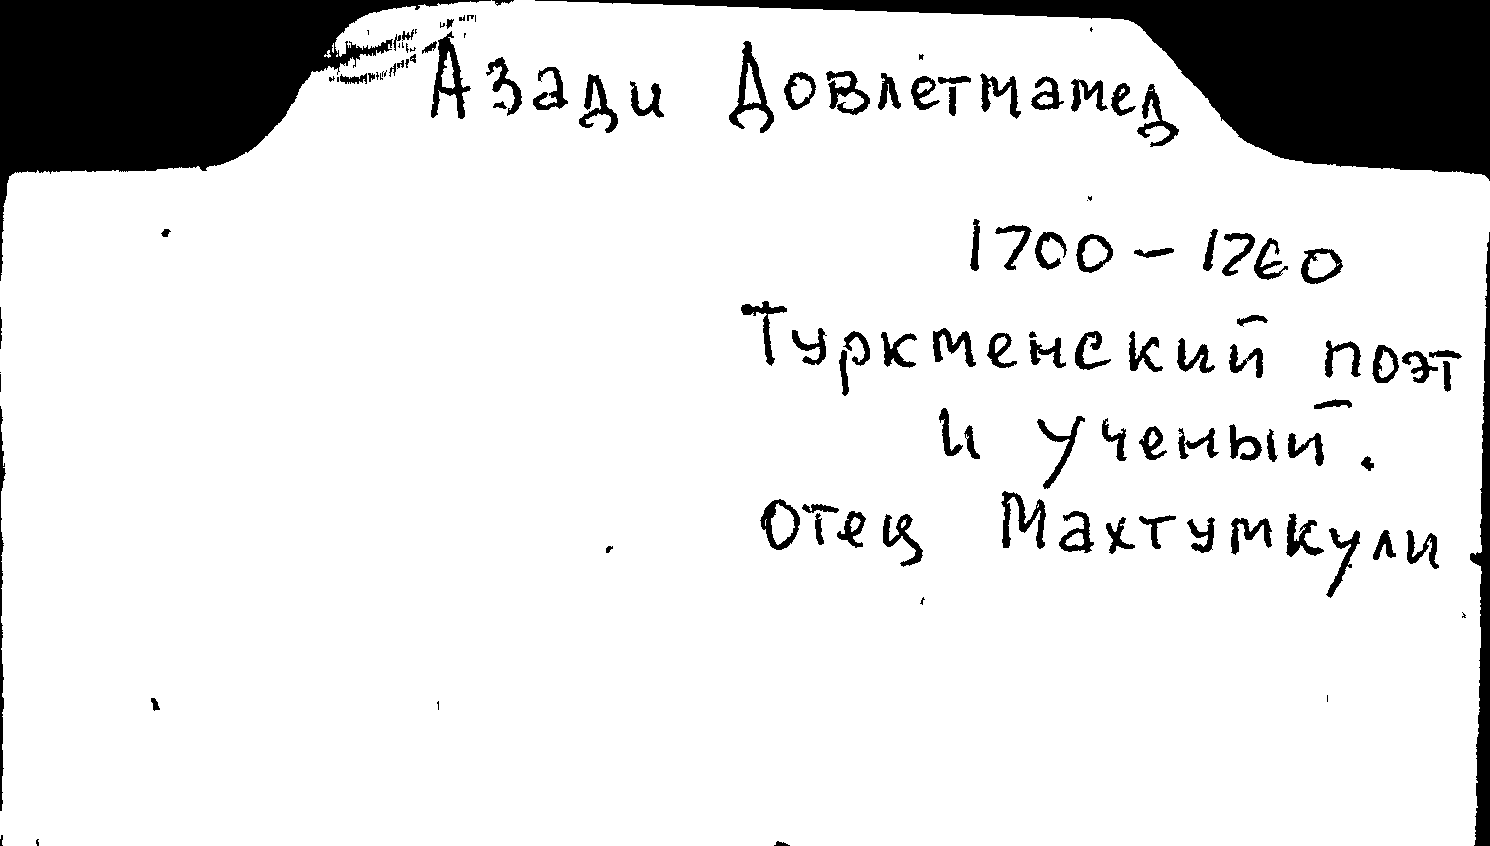 Азади Довлетмамед
1700 - 1760
Туркменский поэт
и ученый.
Отец Махтумкули.